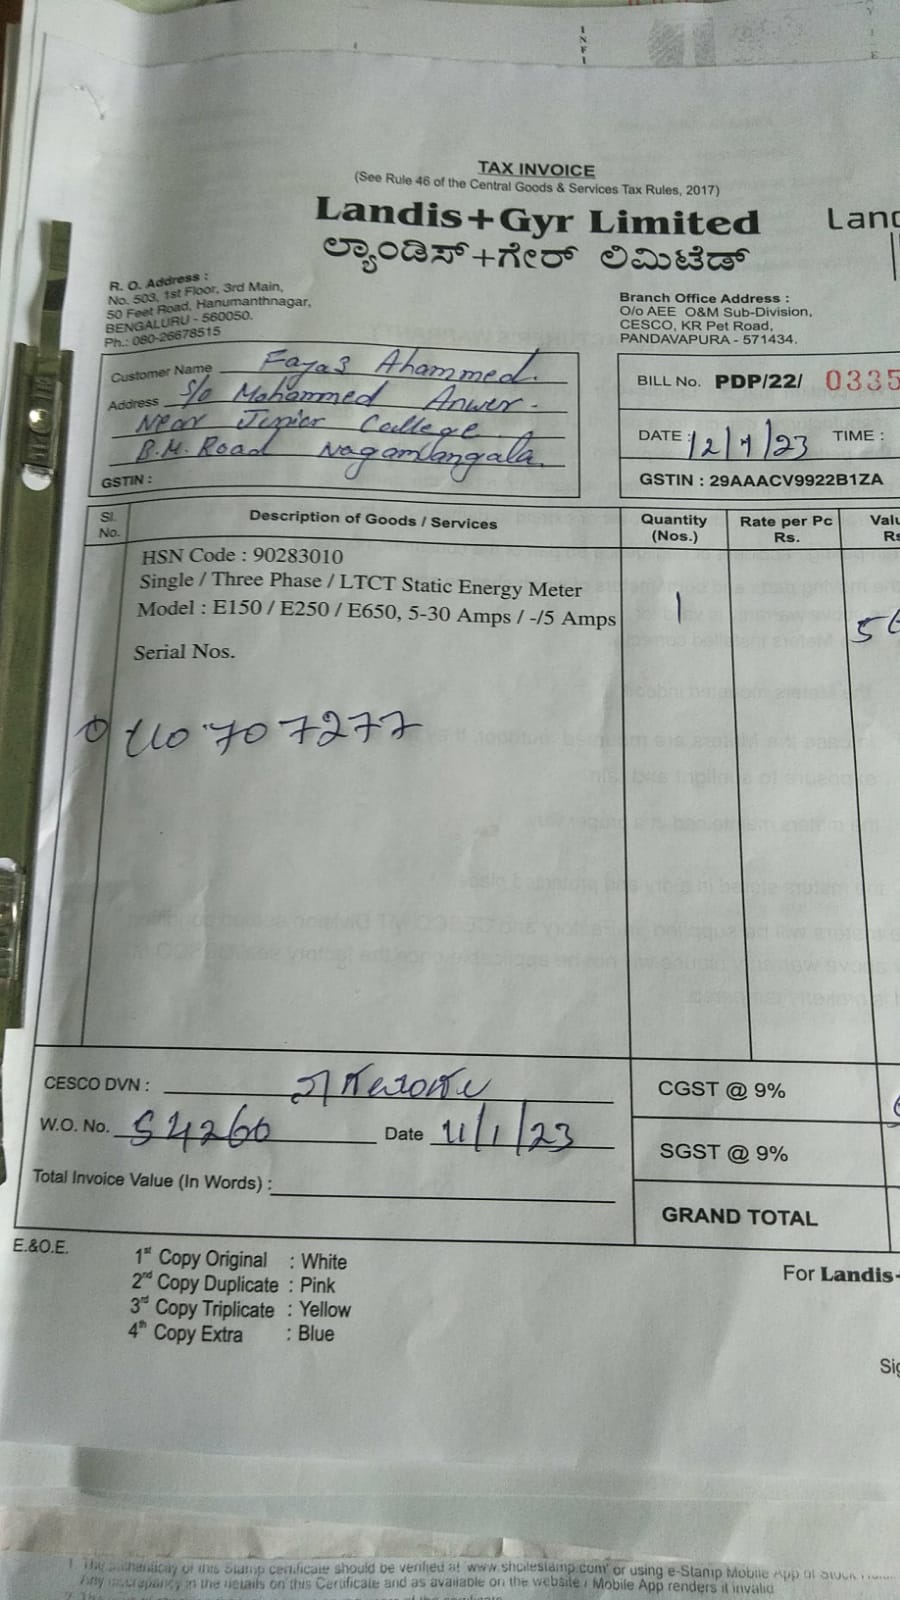 TAX INVOICE
(See Rule 46 of the Central Goods & Services Tax Rules, 2017)
Landis+Gyr Limited
ಲ್ಯಾಂಡಿಸ್+ಗೇರ್ ಲಿಮಿಟೆಡ್
Land
R. O. Address :
No. 503, 1st Floor, 3rd Main,
50 Feet Road, Hanumanthnagar,
BENGALURU - 560050.
Ph.: 080-26678515
Branch Office Address :
O/o AEE O&M Sub-Division,
CESCO, KR Pet Road,
PANDAVAPURA - 571434.
Customer Name Fayaz Ahammed.
Address S/o Mohammed Anwer.
Near Junior College
B.M. Road Nagamangala
GSTIN :
BILL No. PDP/22/ 0335
DATE : 12/1/23 TIME :
GSTIN : 29AAACV9922B1ZA
Sl. No. Description of Goods / Services Quantity (Nos.) Rate per Pc Rs. Valu Rs
HSN Code : 90283010
Single / Three Phase / LTCT Static Energy Meter
Model : E150 / E250 / E650, 5-30 Amps / -/5 Amps 1
Serial Nos.
707277
CESCO DVN :
W.O. No. 54260 Date 11/1/23
Total Invoice Value (In Words) :
CGST @ 9%
SGST @ 9%
GRAND TOTAL
E.&O.E.
1st Copy Original : White
2nd Copy Duplicate : Pink
3rd Copy Triplicate : Yellow
4th Copy Extra : Blue
For Landis+
Sig
1. The authenticity of this Stamp certificate should be verified at 'www.shcilestamp.com' or using e-Stamp Mobile App of Stock
Any discrepancy in the details on this Certificate and as available on the website / Mobile App renders it invalid